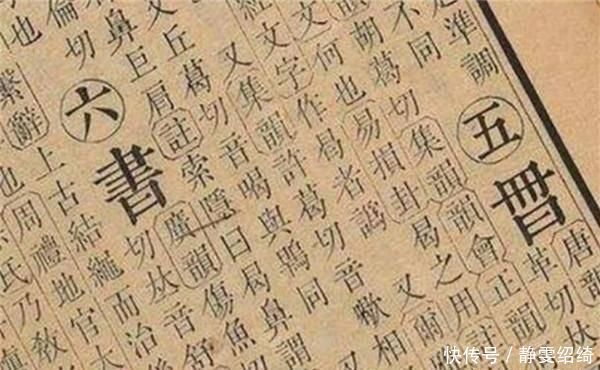 唐韻
革切𠀤
是準調
五
不同
胡葛切集韻韻會正韻
文何也易損卦曷之用註
經文文字作曷者譌又爾
又集韻許葛切音歇相
文丘葛切音喝與鶡同
鼻巨肩註索隱曰曷鼻謂
倫切
六
書
廣韻傷魚
切𠀤音舒
也
繫辭上古結繩而治
也周禮地官大
氏乃教
快传号／静雯绍绮